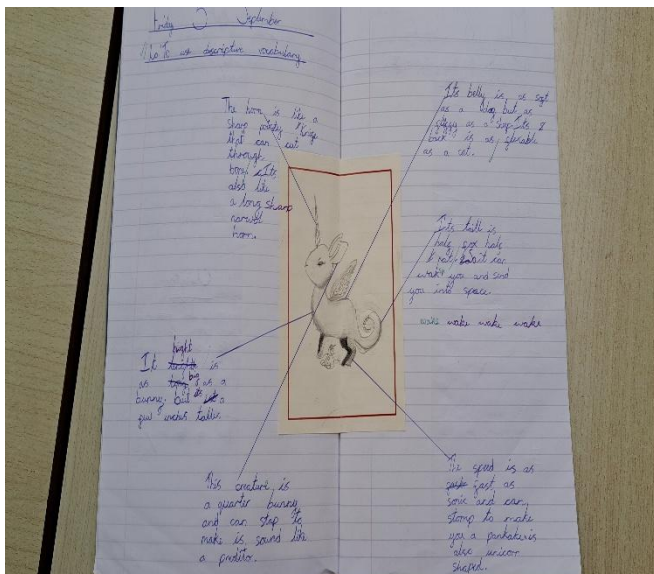 Friday 5 September
LO To use descriptive vocabulary
The horn is like a
sharp pointy knife
that can cut
through
bone. Its
also like
a long sharp
narwal
horn.
Its belly is as soft
as a dog but as
fluffy as a sheep. Its
back is as flexable
as a cat.
Its taill is
half fox half
rat. it can
wak you and send
you into space.
wake wake wake
It hight is
as big as a
bunny but its a
few inches taller.
This creature is
a quarter bunny
and can stop to
make is sound like
a preditor.
The speed is as
fast as
sonic and can
stomp to make
you a pankake is
also unicorn
shaped.